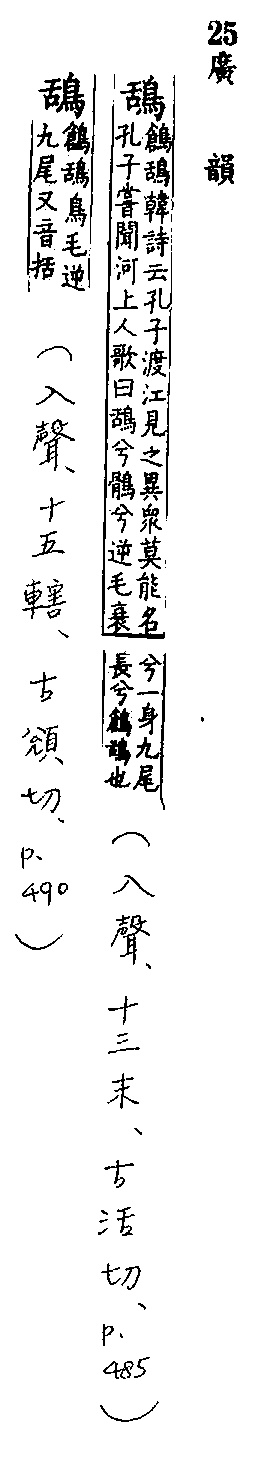 25
廣韻
鴰 鶬鴰韓詩云孔子渡江見之異衆莫能名
孔子嘗聞河上人歌曰鴰兮鶻兮逆毛衰
兮一身九尾
長兮鶬鴰也
(入聲、十三末、古活切、p.485)
鴰 鶬鴰鳥毛逆
九尾又音括
(入聲、十五轄、古頒切、p.490)